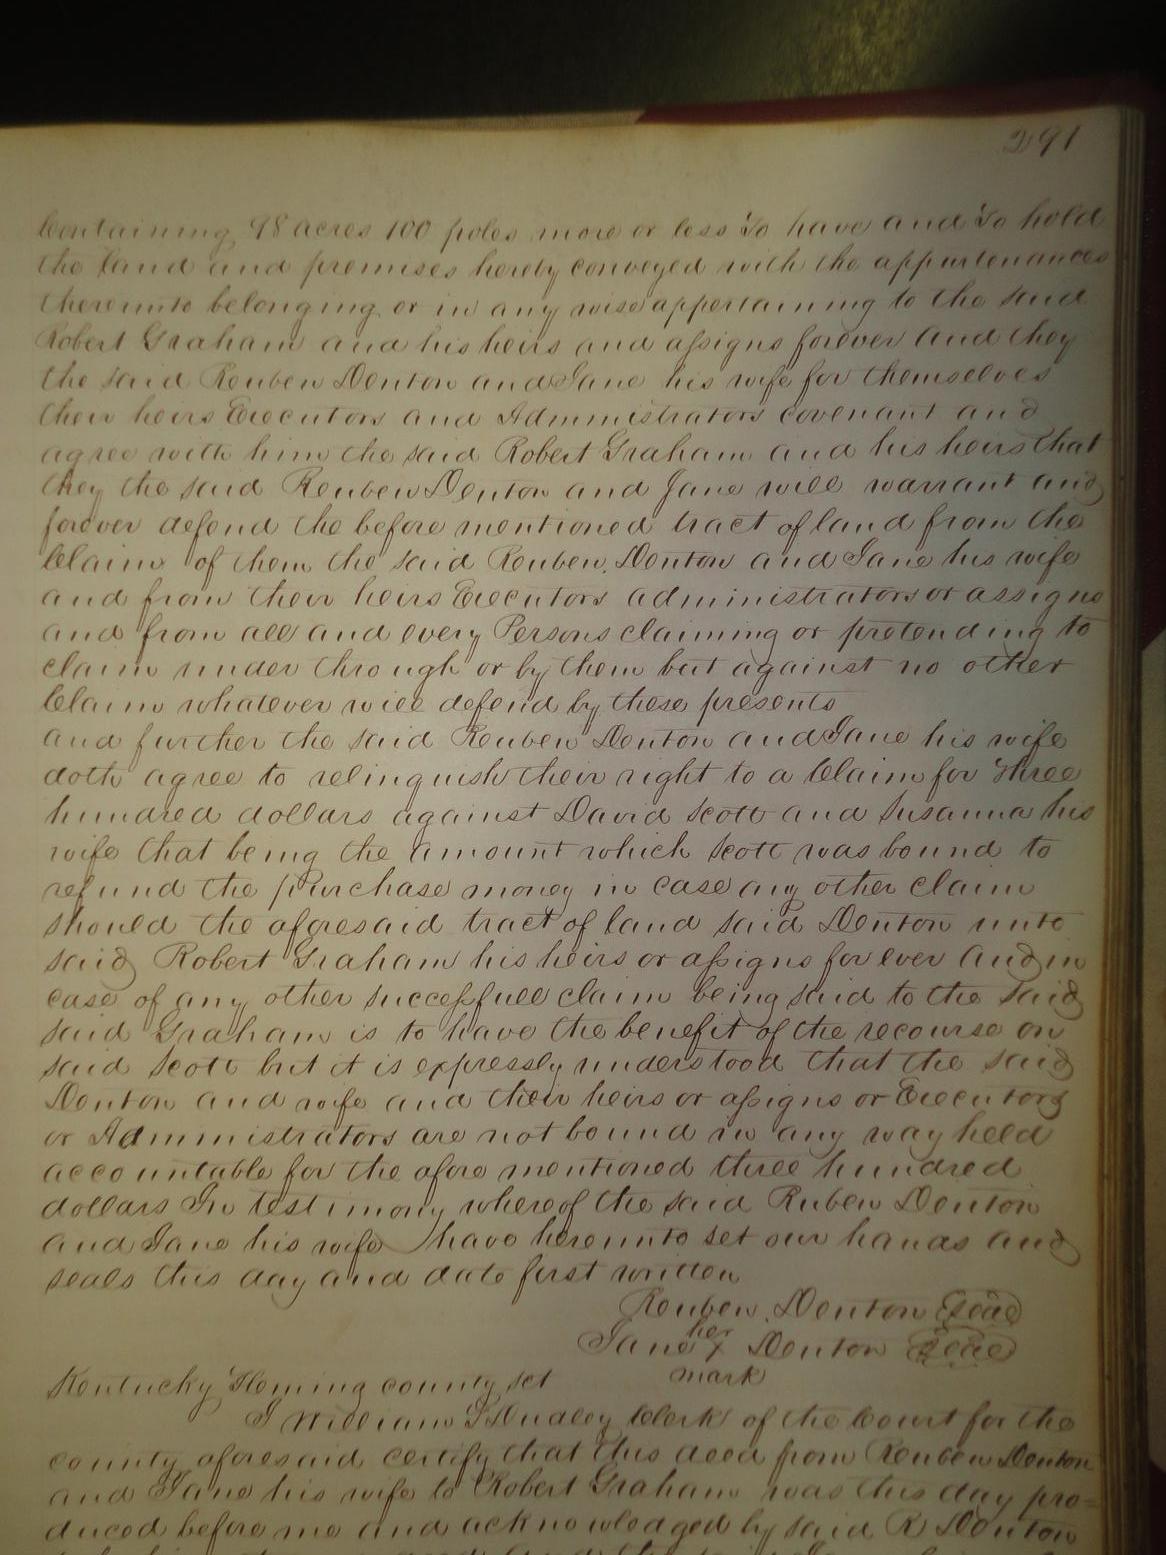 291
Containing 98 acres 100 poles more or less To have and To hold
the land and premises hereby conveyed with the appurtenances
thereunto belonging or in any wise appertaining to the said
Robert Graham and his heirs and assigns forever And they
the said Reuben Denton and Jane his wife for themselves
their heirs Executors and Administrators covenant and
agree with him the said Robert Graham and his heirs that
they the said Reuben Denton and Jane will warrant and
forever defend the before mentioned tract of land from the
Claim of them the said Reuben Denton and Jane his wife
and from their heirs Executors administrators or assigns
and from all and every Persons claiming or pretending to
claim under through or by them but against no other
Claim whatever will defend by these presents
and further the said Reuben Denton and Jane his wife
doth agree to relinquish their right to a Claim for Three
hundred dollars against David Scott and Susanna his
wife that being the amount which Scott was bound to
refund the purchase money in case any other claim
should the aforesaid tract of land said Denton unto
said Robert Graham his heirs or assigns for ever And in
case of any other successfull claim being said to the said
said Graham is to have the benefit of the recourse on
said Scott but it is expressly understood that the said
Denton and wife and their heirs or assigns or Executors
or Administrators are not bound in any way held
accountable for the afore mentioned three hundred
dollars In testimony whereof the said Ruben Denton
and Jane his wife have hereunto set our hands and
seals this day and date first written
Reuben Denton Seal
Jane her X mark Denton Seal
Kentucky Fleming county sct
I William Dudley Clerk of the Court for the
county aforesaid certify that this deed from Reuben Denton
and Jane his wife to Robert Graham was this day pro=
duced before me and acknowledged by said R Denton